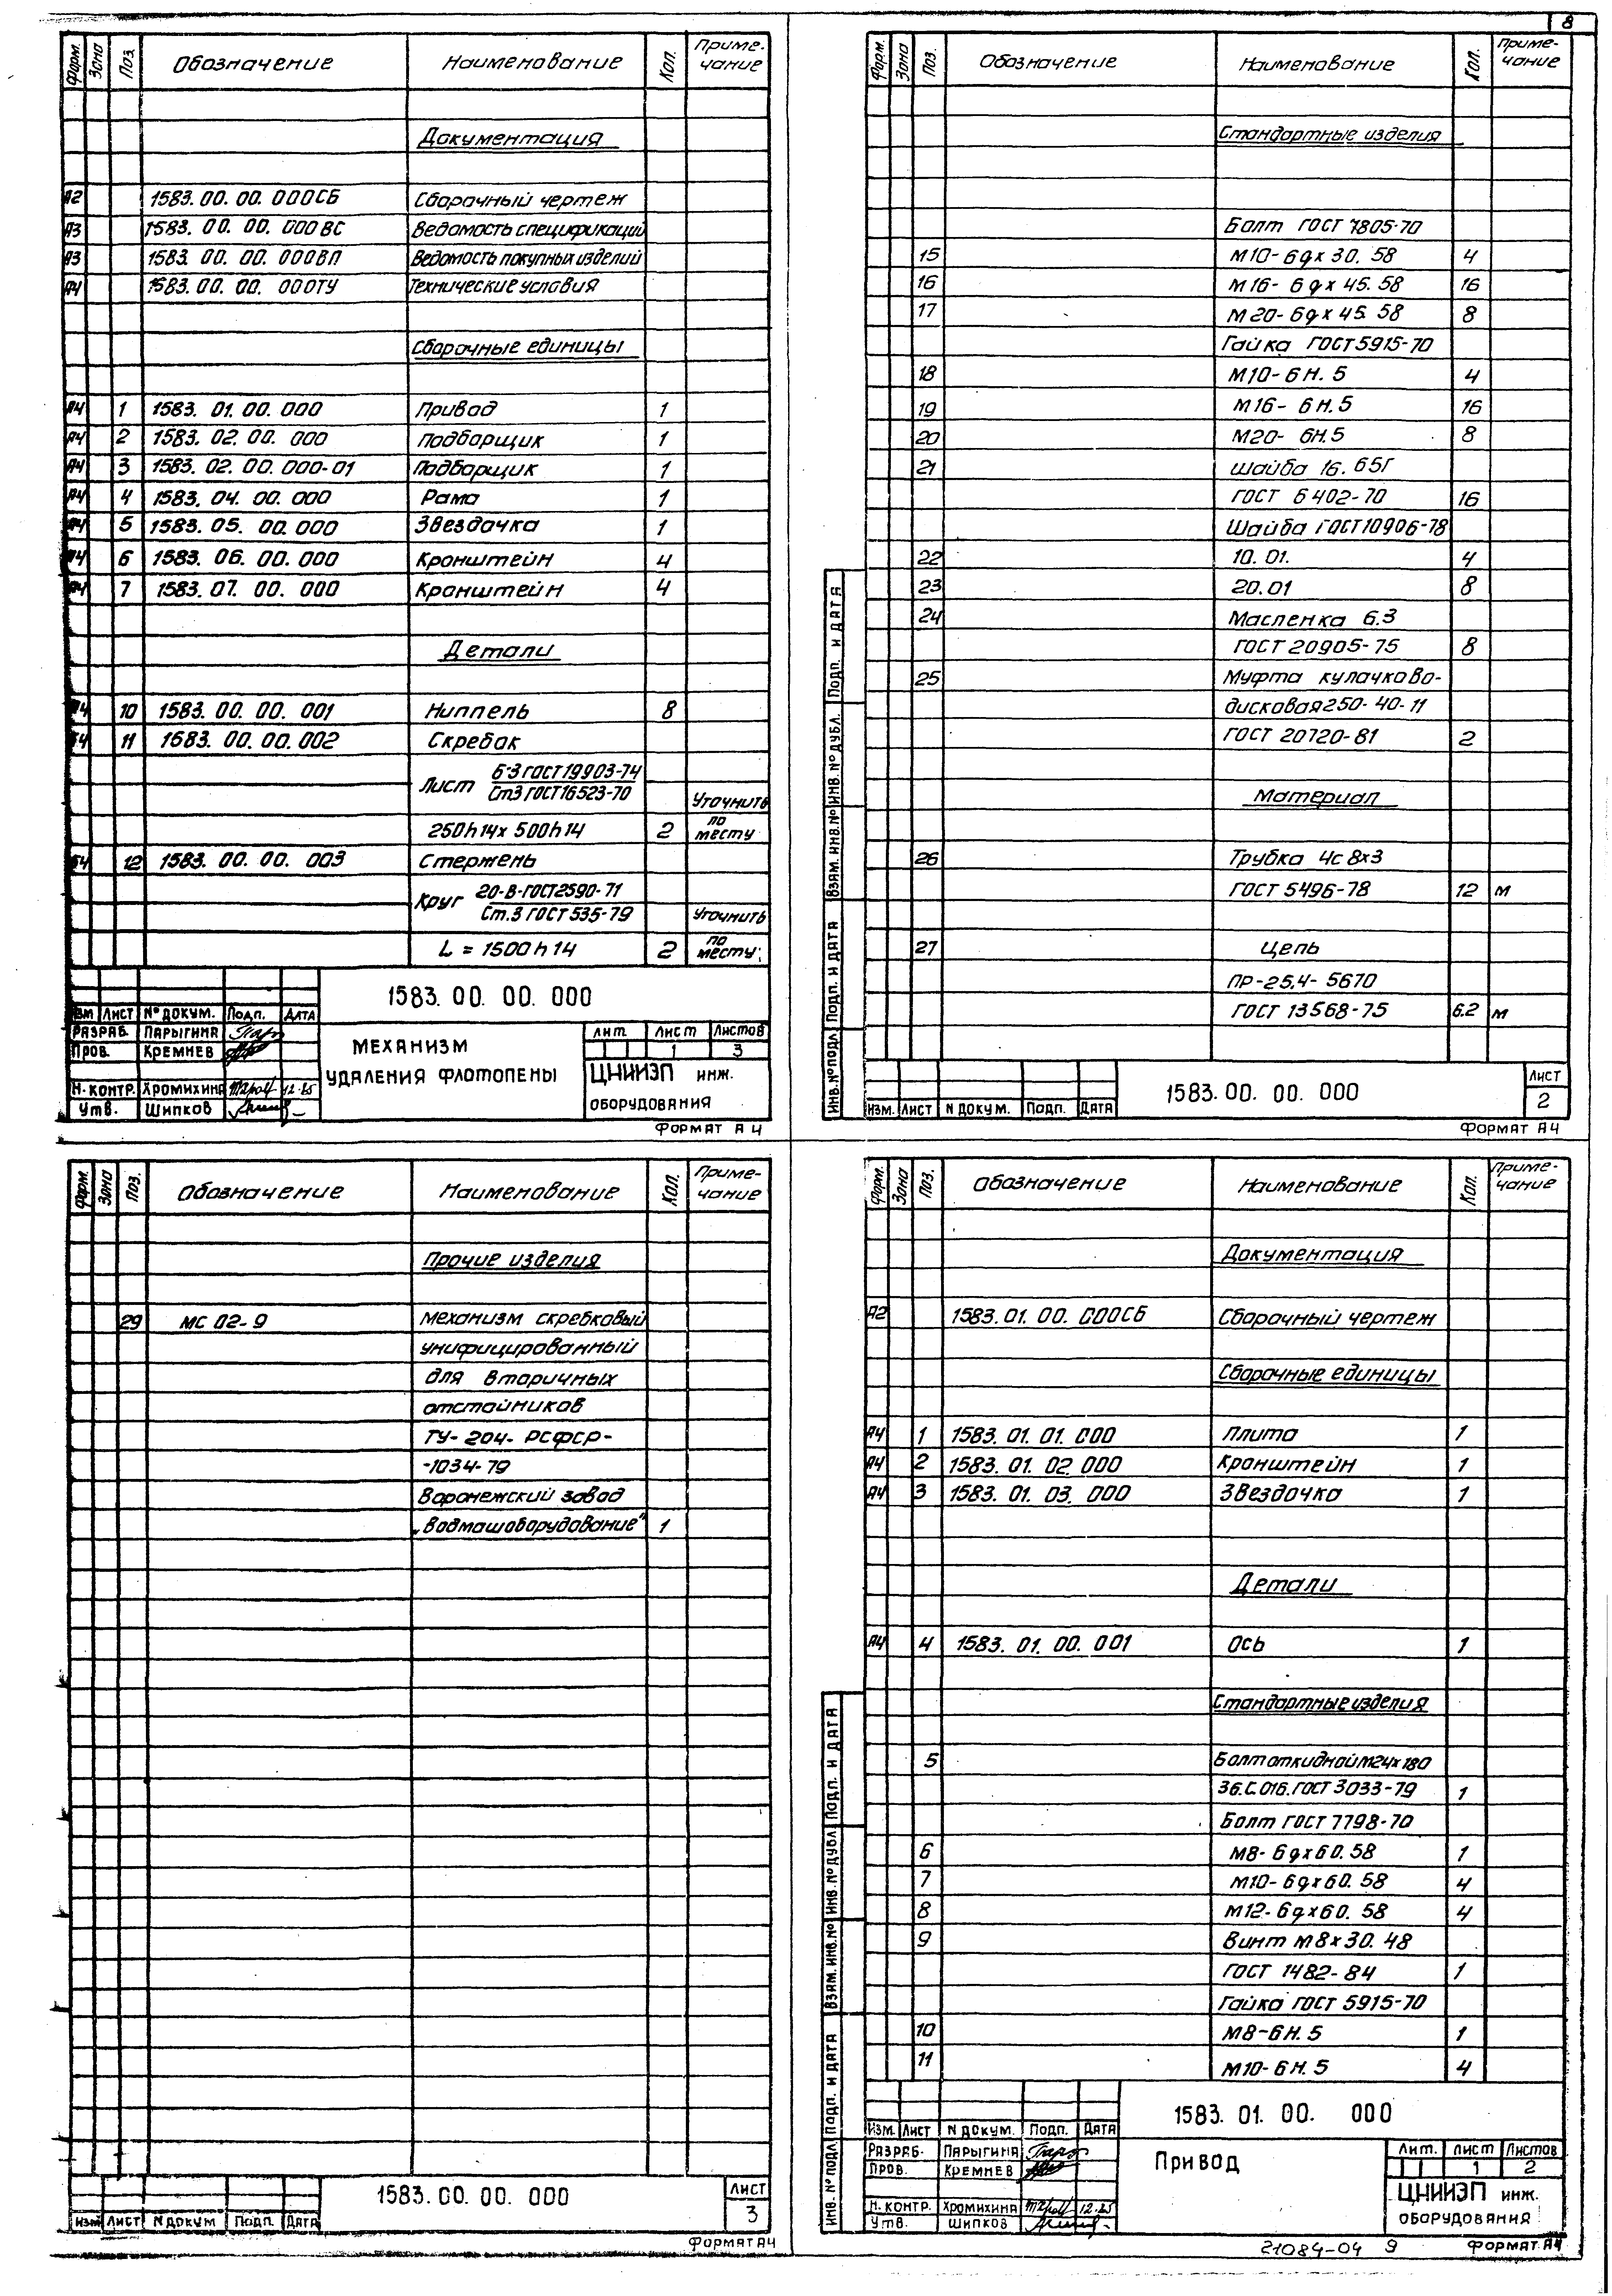 8
Форм. Зона Поз. Обозначение Наименование Кол. Приме-
чание
Документация
А2 1583.00.00.000СБ Сборочный чертеж
А3 1583.00.00.000ВС Ведомость спецификаций
А3 1583.00.00.000ВП Ведомость покупных изделий
А4 1583.00.00.000ТУ Технические условия
Сборочные единицы
А4 1 1583.01.00.000 Привод 1
А4 2 1583.02.00.000 Подборщик 1
А4 3 1583.02.00.000-01 Подборщик 1
А4 4 1583.04.00.000 Рама 1
А4 5 1583.05.00.000 Звездочка 1
А4 6 1583.06.00.000 Кронштейн 4
А4 7 1583.07.00.000 Кронштейн 4
Детали
А4 10 1583.00.00.001 Ниппель 8
Б4 11 1583.00.00.002 Скребок
Лист 6-3 ГОСТ 19903-74
Ст3 ГОСТ 16523-70 Уточнить
250h14х500h14 2 по
месту
Б4 12 1583.00.00.003 Стержень
Круг 20-В-ГОСТ 2590-71
Ст.3 ГОСТ 535-79 Уточнить
L = 1500h14 2 по
месту
1583.00.00.000
Изм Лист № докум. Подп. Дата
Разраб. Парыгина
Пров. Кремнев
Н. контр. Хромихина 12.85
Утв. Шипков
Механизм
удаления флотопены
Лит. Лист Листов
1 3
ЦНИИЭП инж.
оборудования
Формат А4
Форм. Зона Поз. Обозначение Наименование Кол. Приме-
чание
Стандартные изделия
Болт ГОСТ 7805-70
15 М10-6gх30.58 4
16 М16-6gх45.58 16
17 М20-6gх45.58 8
Гайка ГОСТ 5915-70
18 М10-6Н.5 4
19 М16-6Н.5 16
20 М20-6Н.5 8
21 Шайба 16.65Г
ГОСТ 6402-70 16
Шайба ГОСТ 10906-78
22 10.01. 4
23 20.01 8
24 Масленка 6.3
ГОСТ 20905-75 8
25 Муфта кулачково-
дисковая 250-40-11
ГОСТ 20720-81 2
Материал
26 Трубка 4с 8х3
ГОСТ 5496-78 12 м
27 Цепь
ПР-25,4-5670
ГОСТ 13568-75 6.2 м
Инв.№подл. Подп. и дата Взам.инв.№ Инв.№дубл. Подп. и дата
Изм. Лист N докум. Подп. Дата
1583.00.00.000
Лист
2
Формат А4
Форм. Зона Поз. Обозначение Наименование Кол. Приме-
чание
Прочие изделия
29 МС 02-9 Механизм скребковый
унифицированный
для вторичных
отстойников
ТУ-204-РСФСР-
-1034-79
Воронежский завод
„Водмашоборудование" 1
Изм Лист N докум Подп. Дата
1583.00.00.000
Лист
3
Формат А4
Форм. Зона Поз. Обозначение Наименование Кол. Приме-
чание
Документация
А2 1583.01.00.000СБ Сборочный чертеж
Сборочные единицы
А4 1 1583.01.01.000 Плита 1
А4 2 1583.01.02.000 Кронштейн 1
А4 3 1583.01.03.000 Звездочка 1
Детали
А4 4 1583.01.00.001 Ось 1
Стандартные изделия
5 Болт откидной М24х180
36.С.016.ГОСТ 3033-79 1
Болт ГОСТ 7798-70
6 М8-6gх60.58 1
7 М10-6gх60.58 4
8 М12-6gх60.58 4
9 Винт М8х30.48
ГОСТ 1482-84 1
Гайка ГОСТ 5915-70
10 М8-6Н.5 1
11 М10-6Н.5 4
Инв.№подл. Подп. и дата Взам.инв.№ Инв.№дубл. Подп. и дата
1583.01.00.000
Изм. Лист N докум. Подп. Дата
Разраб. Парыгина
Пров. Кремнев
Н. контр. Хромихина 12.85
Утв. Шипков
Привод
Лит. Лист Листов
1 2
ЦНИИЭП инж.
оборудования
21084-04 9 Формат А4